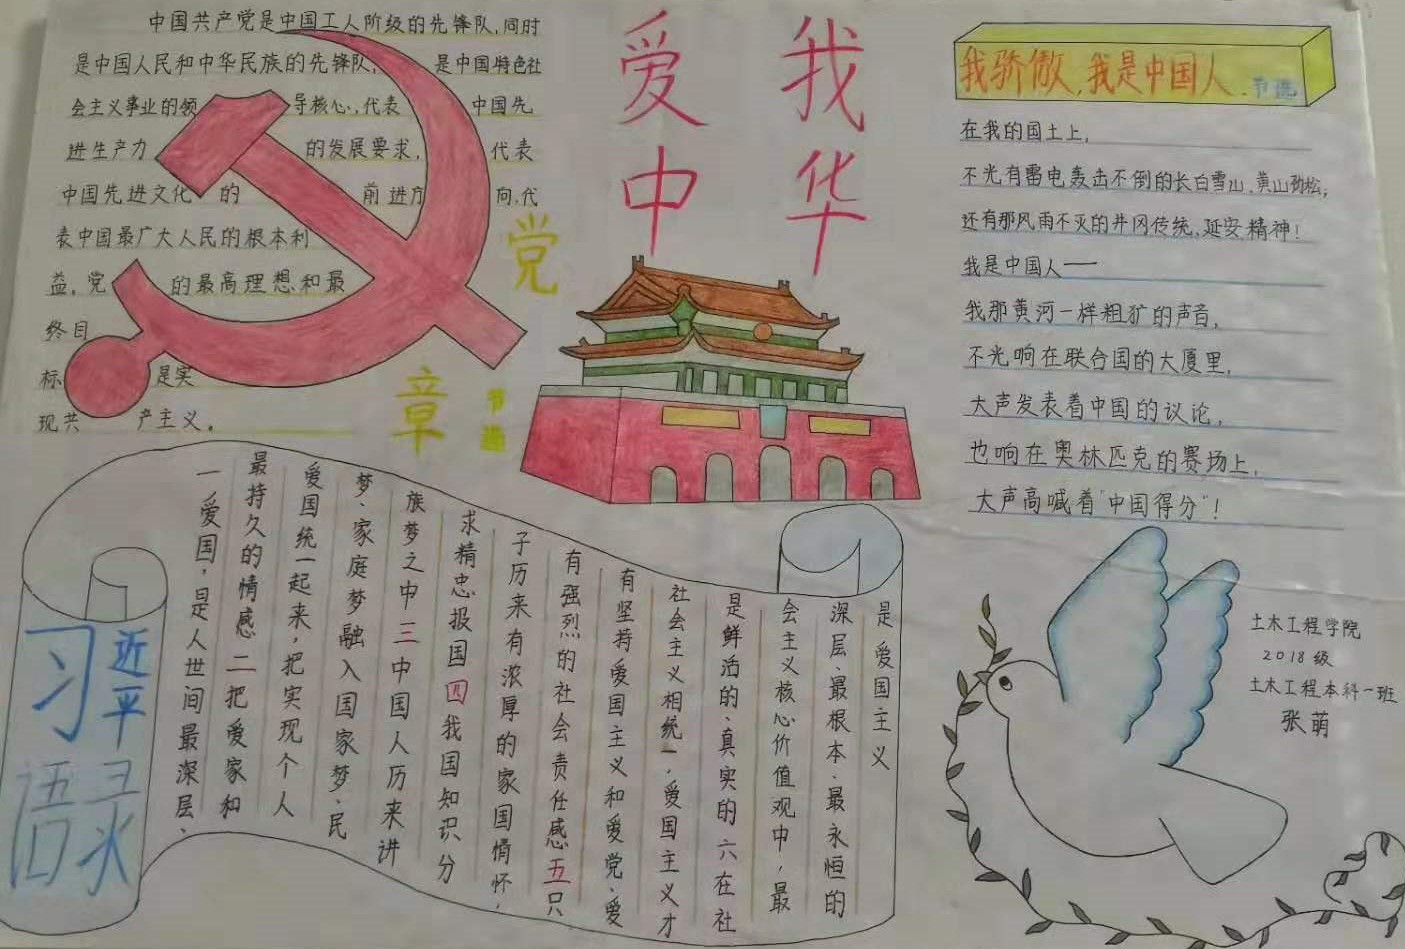 中国共产党是中国工人阶级的先锋队,同时
是中国人民和中华民族的先锋队,是中国特色社
会主义事业的领导核心,代表中国先
进生产力的发展要求,代表
中国先进文化的前进方向,代
表中国最广大人民的根本利
益。党的最高理想和最
终目
标是实
现共产主义。
党章
节选
我爱
中华
我骄傲,我是中国人.节选
在我的国土上,
不光有雷电轰击不倒的长白雪山、黄山劲松,
还有那风雨不灭的井冈传统、延安精神!
我是中国人——
我那黄河一样粗犷的声音,
不光响在联合国的大厦里,
大声发表着中国的议论,
也响在奥林匹克的赛场上,
大声高喊着"中国得分"!
习近平
语录
一爱国,是人世间最深层、
最持久的情感二把爱家和
爱国统一起来,把实现个人
梦、家庭梦融入国家梦、民
族梦之中三中国人历来讲
求精忠报国四我国知识分
子历来有浓厚的家国情怀,
有强烈的社会责任感五只
有坚持爱国主义和爱党、爱
社会主义相统一,爱国主义才
是鲜活的、真实的六在社
会主义核心价值观中,最
深层、最根本、最永恒的
是爱国主义
土木工程学院
2018级
土木工程本科一班
张萌